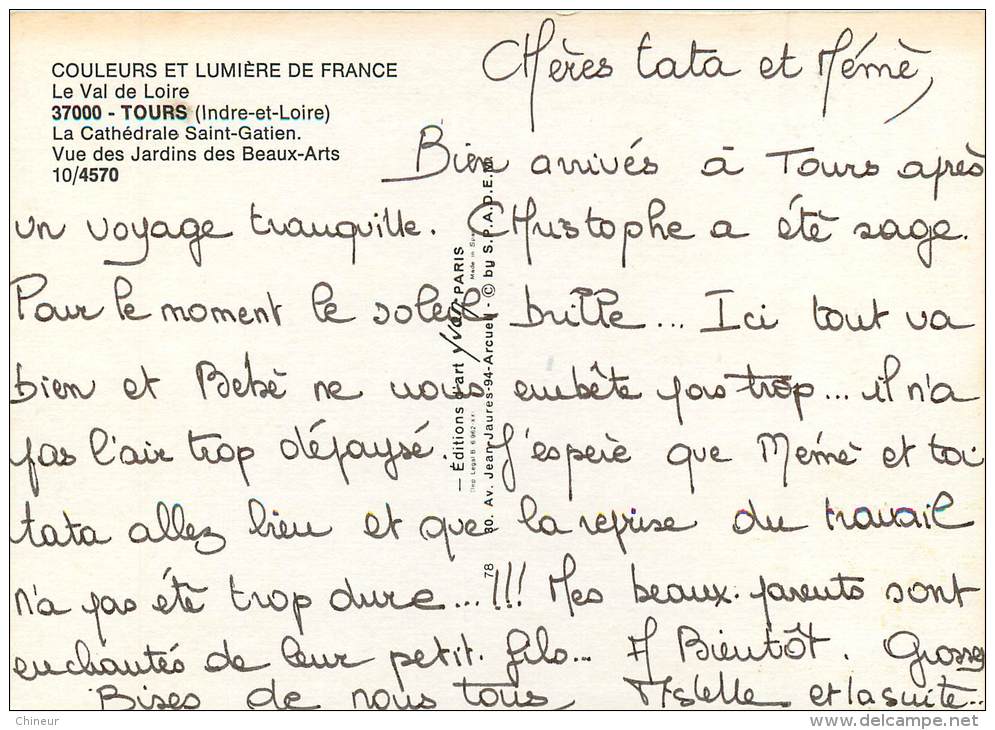 COULEURS ET LUMIÈRE DE FRANCE
Le Val de Loire
37000 - TOURS (Indre-et-Loire)
La Cathédrale Saint-Gatien.
Vue des Jardins des Beaux-Arts
10/4570
CHères tata et Mémè,
Bien arrivés à Tours après
un voyage tranquille. CHristophe a été sage.
Pour le moment le soleil brille... Ici tout va
bien et Bébé ne nous embête pas trop... il n'a
pas l'air trop dépaysé. J'espère que Mémè et toi
tata allez bien et que la reprise du travail
n'a pas été trop dure...!!! Mes beaux-parents sont
enchantés de leur petit-fils... A Bientôt. Grosses
Bises de nous tous
et la suite...
— Éditions d'art Yvon-PARIS
Made in
Dep. Legal B.
80. Av. Jean-Jaures-94-Arcueil - © by S.P.A.D.E.M.
78
Chineur
www.delcampe.net